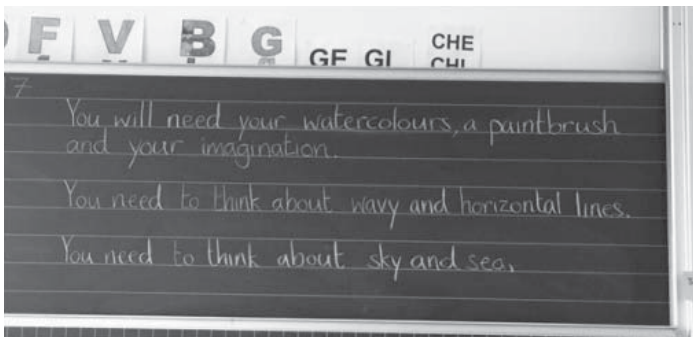 F V B G GE GI CHE
CHI
7
You will need your watercolours, a paintbrush
and your imagination.
You need to think about wavy and horizontal lines.
You need to think about sky and sea.